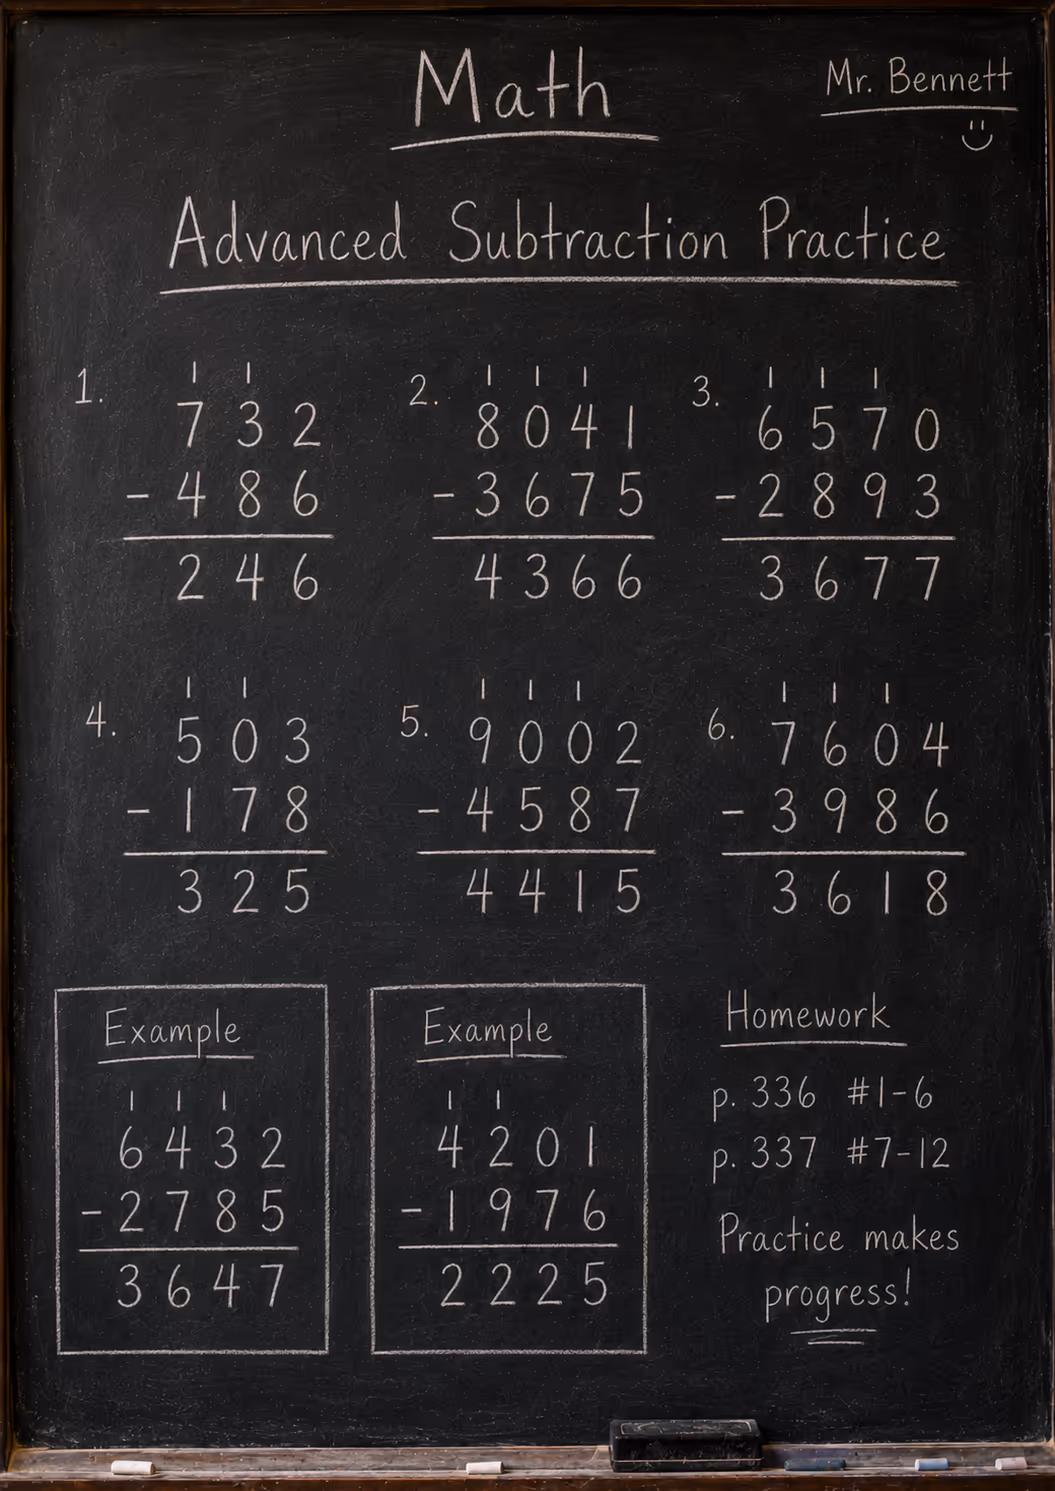 Math
Mr. Bennett
Advanced Subtraction Practice
1.
1 1
7 3 2
- 4 8 6
2 4 6
2.
1 1 1
8 0 4 1
- 3 6 7 5
4 3 6 6
3.
1 1 1
6 5 7 0
- 2 8 9 3
3 6 7 7
4.
1 1
5 0 3
- 1 7 8
3 2 5
5.
1 1 1
9 0 0 2
- 4 5 8 7
4 4 1 5
6.
1 1 1
7 6 0 4
- 3 9 8 6
3 6 1 8
Example
1 1 1
6 4 3 2
- 2 7 8 5
3 6 4 7
Example
1 1
4 2 0 1
- 1 9 7 6
2 2 2 5
Homework
p. 336 #1-6
p. 337 #7-12
Practice makes
progress!